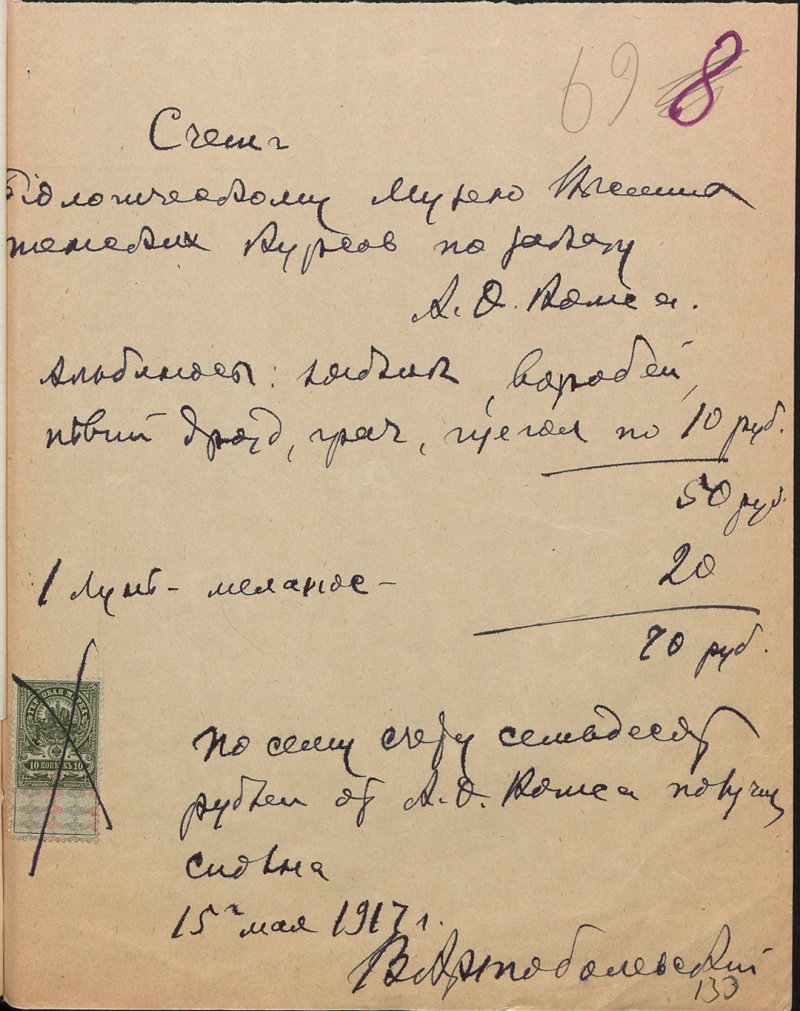 69 8
Счетъ
Біологическому Музею Высших
женских курсов по заказу
А. Ф. Котса.
Альбиносы: зяблик, воробей,
пѣвчий дрозд, грач, щегол по 10 руб.
50 руб.
1 Лунь - меланос - 20
70 руб.
ГЕРБОВАЯ МАРКА
10 КОПѢЕКЪ 10
По сему счету семьдесят
рублей от А. Ф. Котса получил
сполна
15 мая 1917 г.
В Артоболевский
133